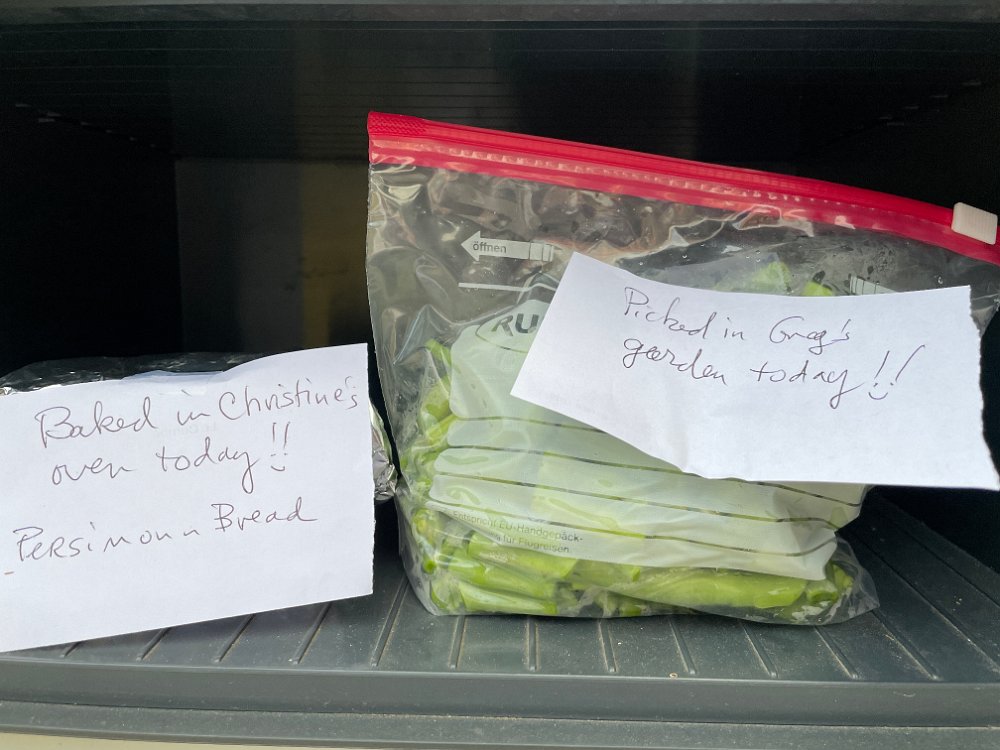 Baked in Christine's
oven today!!
Persimonn Bread
öffnen
RU
Picked in Greg's
garden today!!
Entspricht EU-Handgepäck-
für Flugreisen.